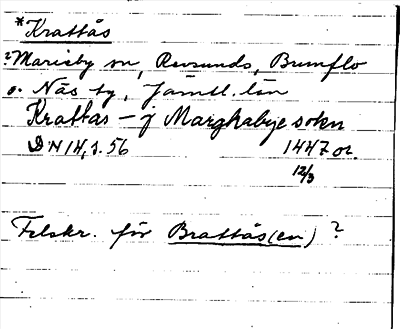 *Krattås
?Marieby sn, Revsunds, Brunflo
o. Näs tg, Jämtl. län
Krattas – j Margħabyе sokn
DN 14, s. 56 1447 or.
12/3
Felskr. för Brattås(en) ?